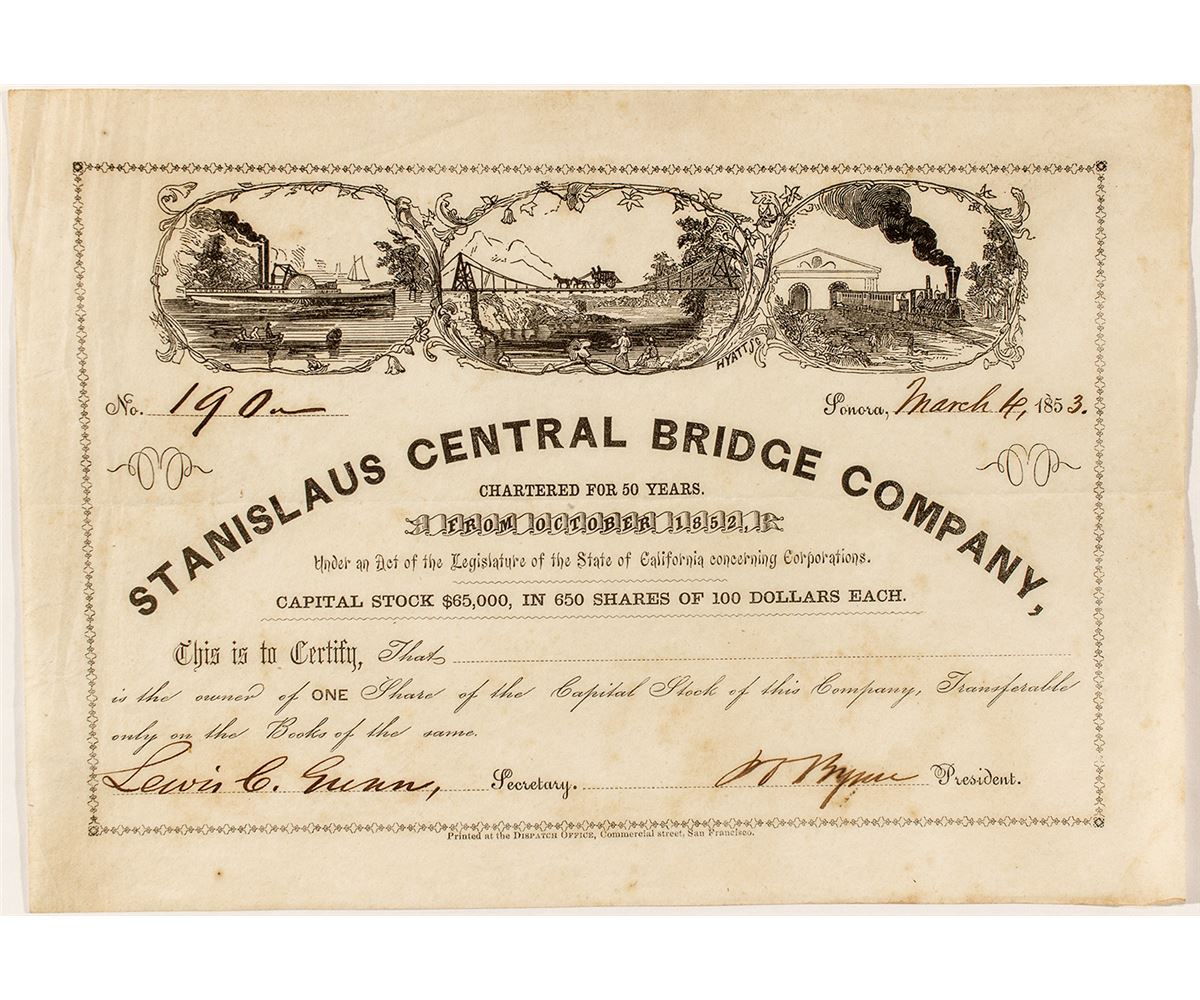 HYATT Jr
No. 190
Sonora, March 4, 1853.
STANISLAUS CENTRAL BRIDGE COMPANY,
CHARTERED FOR 50 YEARS.
FROM OCTOBER 1852,
Under an Act of the Legislature of the State of California concerning Corporations.
CAPITAL STOCK $65,000, IN 650 SHARES OF 100 DOLLARS EACH.
This is to Certify, That
is the owner of ONE Share of the Capital Stock of this Company, Transferable
only on the Books of the same.
Lewis C. Gunn, Secretary. Byrne President.
Printed at the DISPATCH OFFICE, Commercial street, San Francisco.